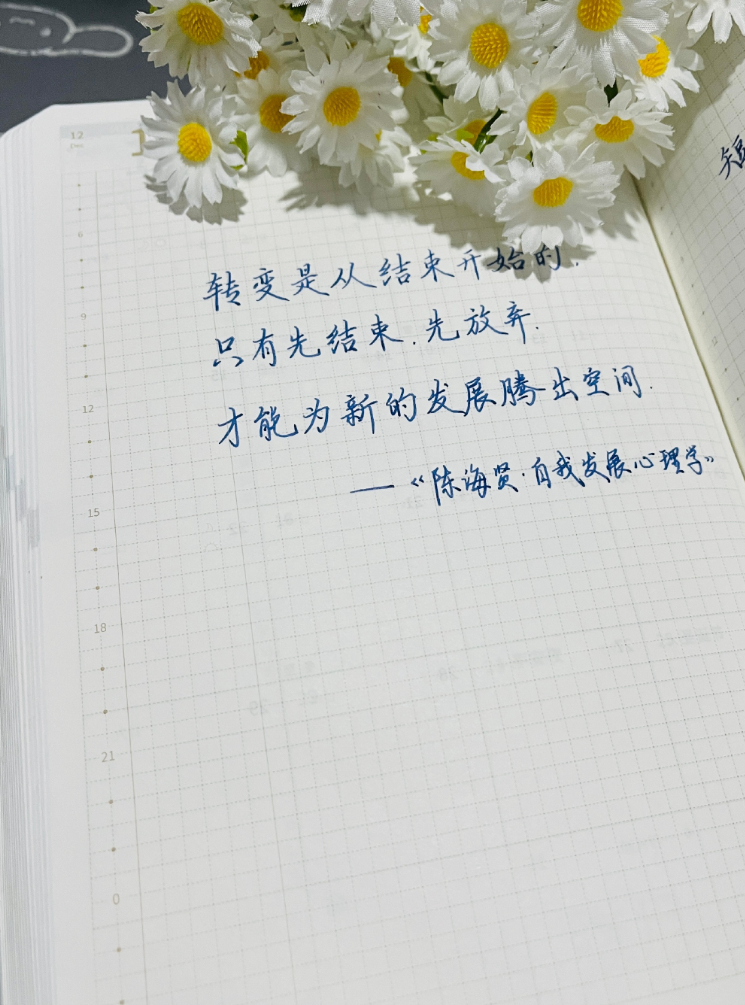 12
转变是从结束开始的.
只有先结束.先放弃.
才能为新的发展腾出空间.
——《陈海贤·自我发展心理学》
6
9
12
15
18
21
0